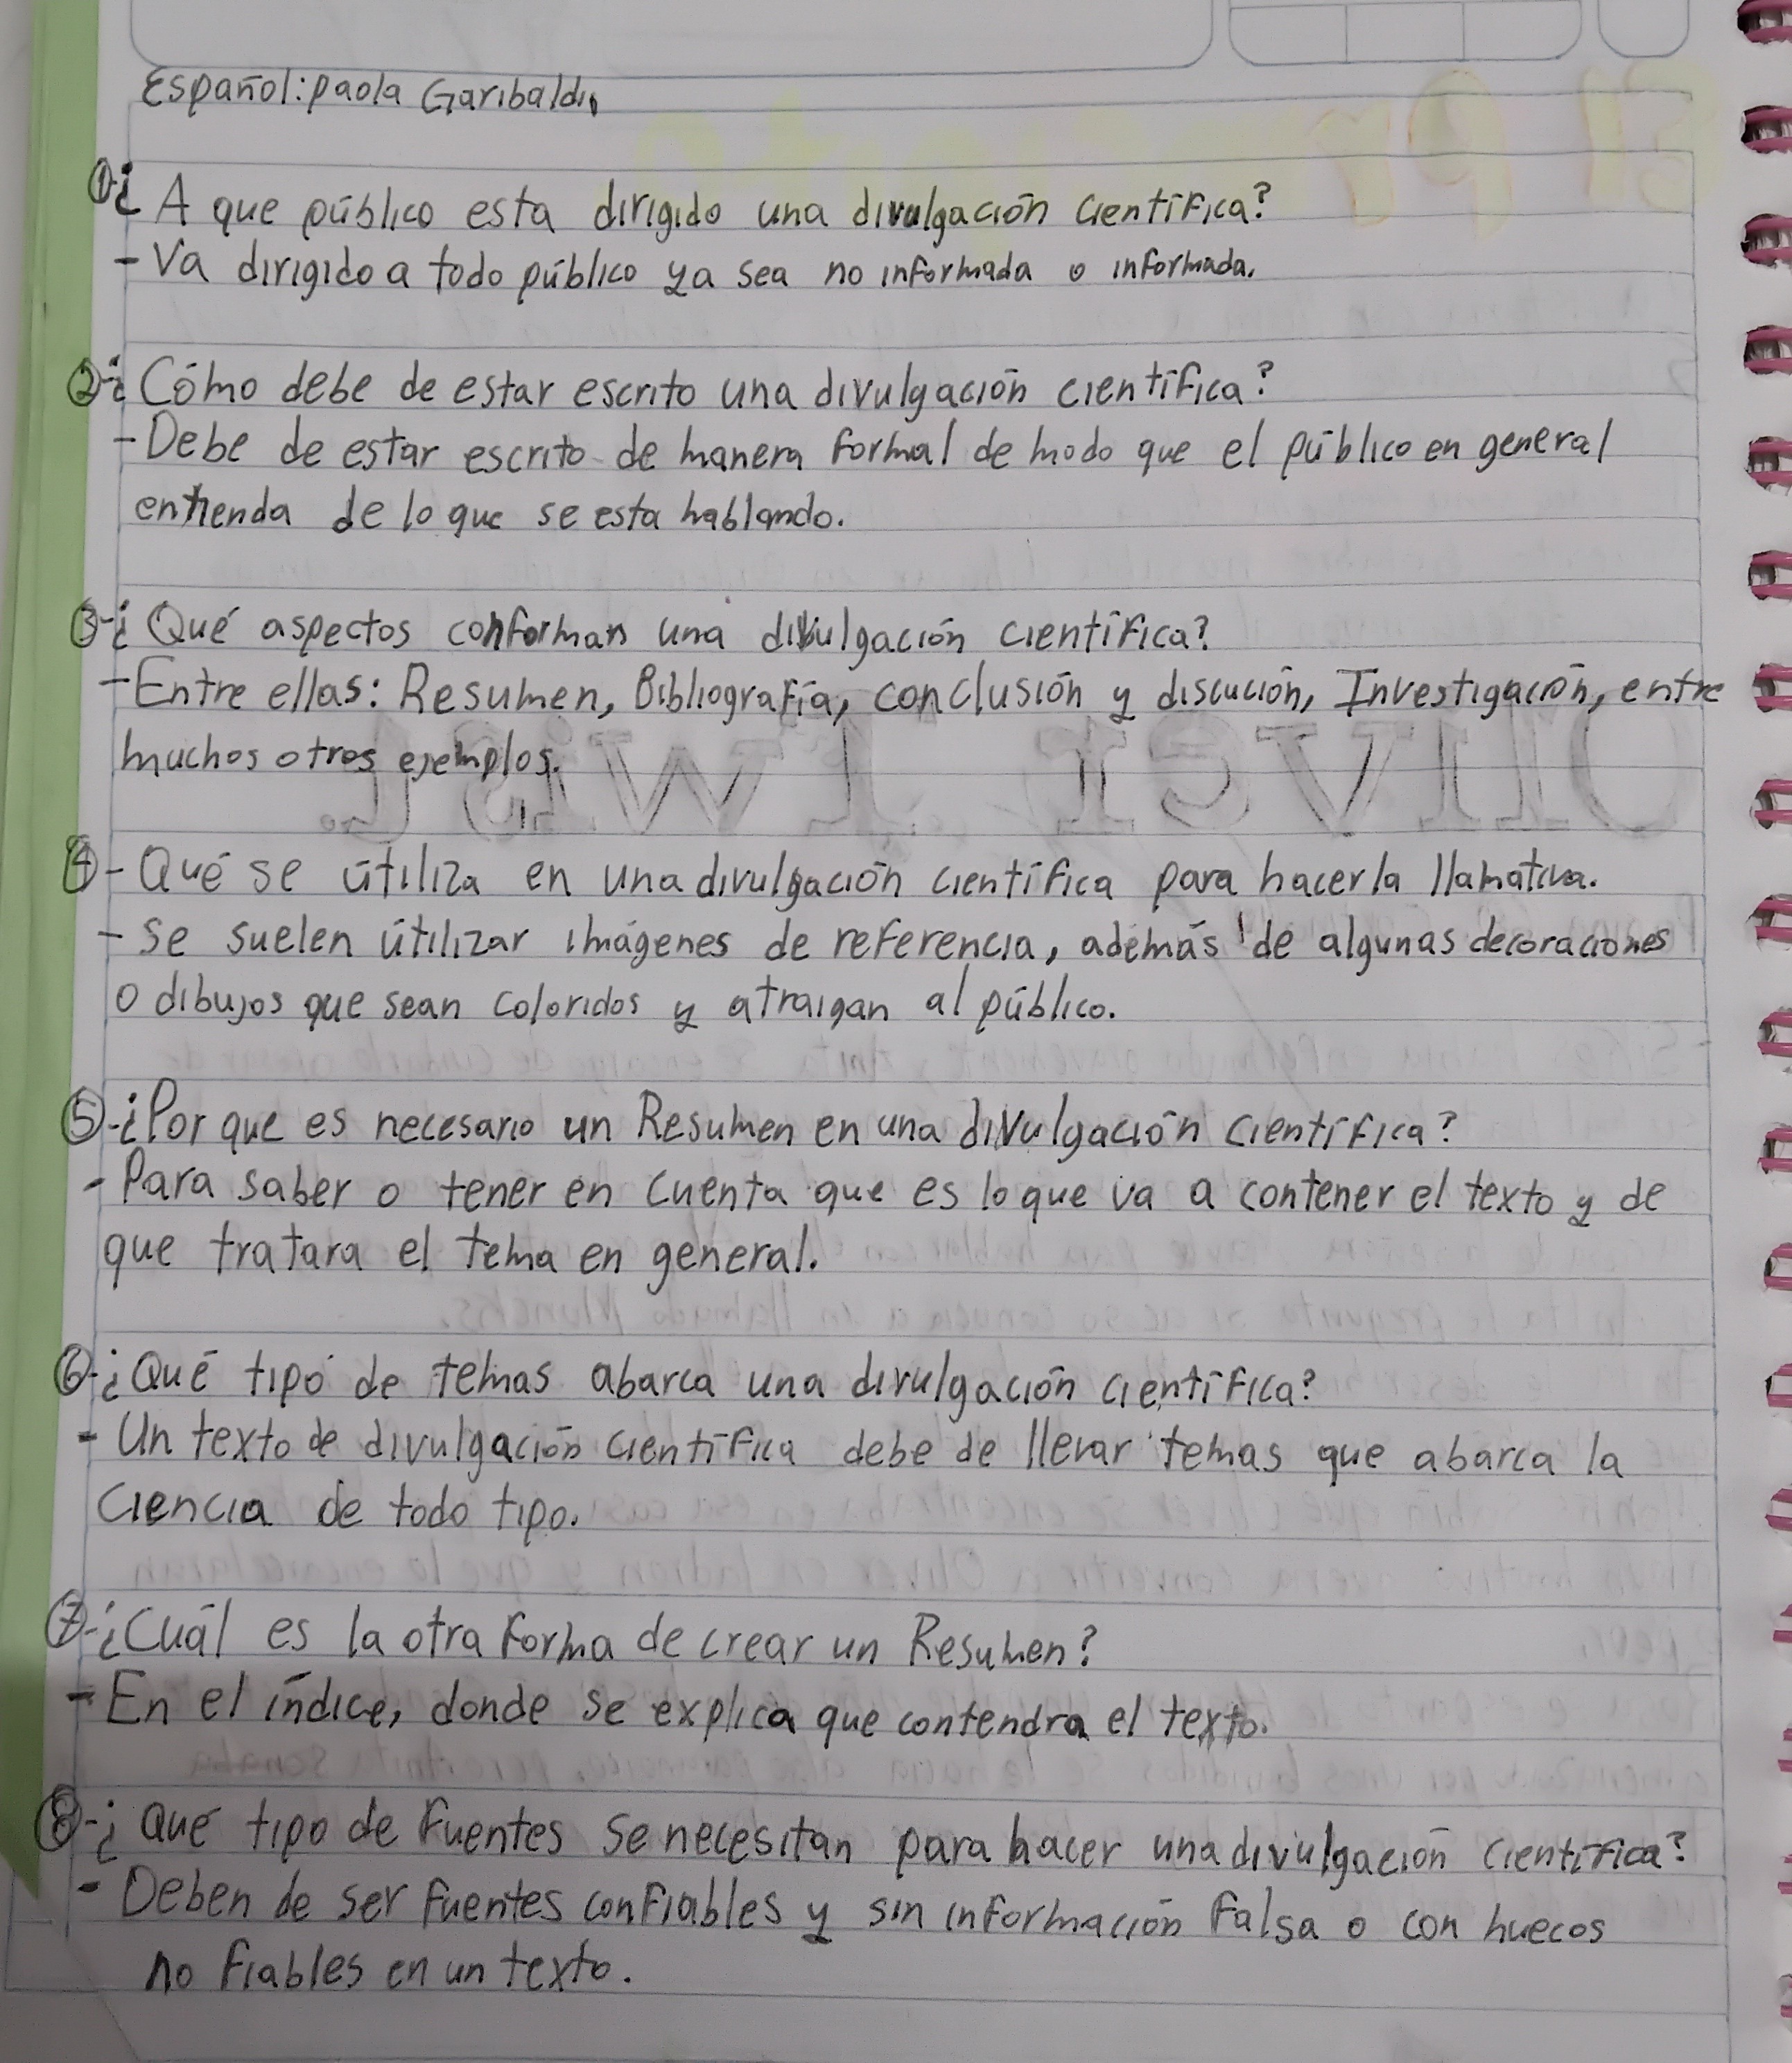 Español: Paola Garibaldi
①¿A que público esta dirigido una divulgación cientifica?
- Va dirigido a todo público ya sea no informada o informada.
②-¿Cómo debe de estar escrito una divulgación cientifica?
- Debe de estar escrito de manera formal de modo que el público en general
entienda de lo que se esta hablando.
③-¿Qué aspectos conforman una divulgación cientifica?
- Entre ellas: Resumen, Bibliografía, conclusión y discución, Investigación, entre
muchos otros ejemplos.
④- Qué se útiliza en una divulgación cientifica para hacerla llamativa.
- Se suelen útilizar imágenes de referencia, además de algunas decoraciones
o dibujos que sean coloridos y atraigan al público.
⑤-¿Por que es necesario un Resumen en una divulgación cientifica?
- Para saber o tener en cuenta que es lo que va a contener el texto y de
que tratara el tema en general.
⑥-¿Qué tipo de temas abarca una divulgación cientifica?
- Un texto de divulgación cientifica debe de llevar temas que abarca la
ciencia de todo tipo.
⑦-¿Cuál es la otra forma de crear un Resumen?
- En el índice, donde se explica que contendra el texto.
⑧-¿Qué tipo de fuentes se necesitan para hacer una divulgación cientifica?
- Deben de ser fuentes confiables y sin información falsa o con huecos
no fiables en un texto.